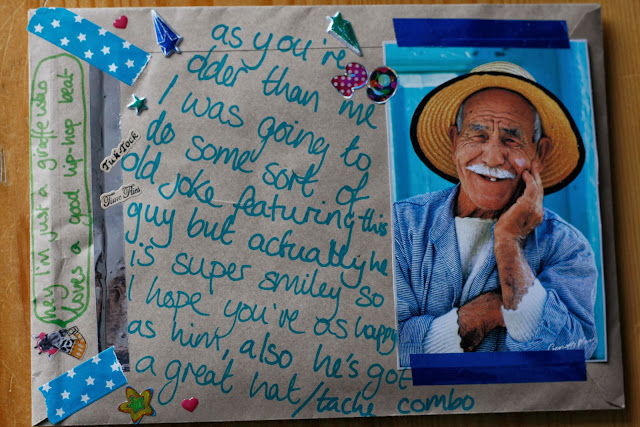 as you're
older than me
I was going to
do some sort of
old joke featuring this
guy but actually he
is super smiley so
I hope you're as happy
as him, also he's got
a great hat/tache combo
hey I'm just a giraffe who
loves a good hip-hop beat
Tick-Tock
Time Flies